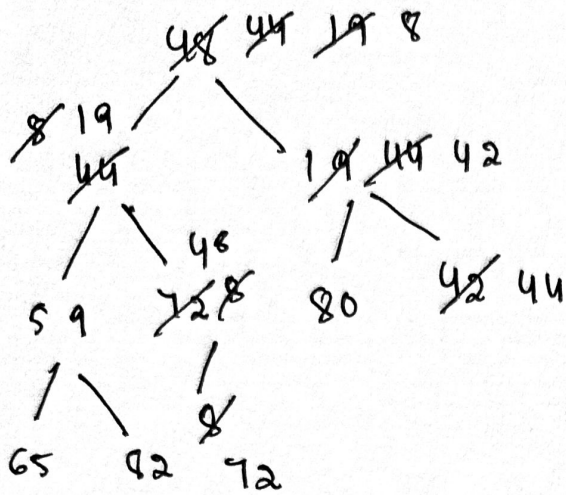 48 44 19 8
8 19
44 19 44 42
48
59 72 8 80 42 44
8
65 82 72